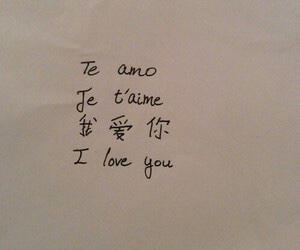 Te amo
Je t'aime
我爱你
I love you